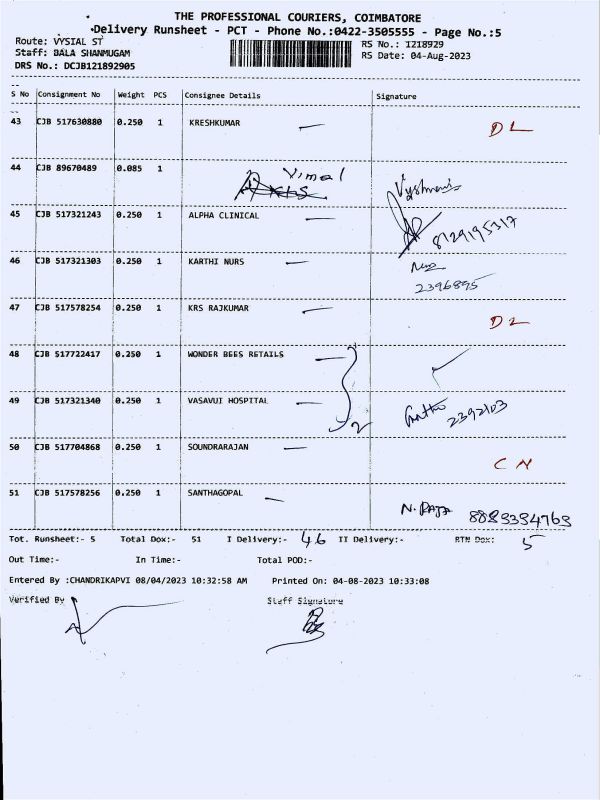 THE PROFESSIONAL COURIERS, COIMBATORE
Delivery Runsheet - PCT - Phone No.:0422-3505555 - Page No.:5
Route: VYSIAL ST
RS No.: 1218929
Staff: BALA SHANMUGAM
RS Date: 04-Aug-2023
DRS No.: DCJB121892905
S No Consignment No Weight PCS Consignee Details Signature
43 CJB 517630880 0.250 1 KRESHKUMAR DL
44 CJB 89670489 0.085 1 Vimal
45 CJB 517321243 0.250 1 ALPHA CLINICAL 8129195317
46 CJB 517321303 0.250 1 KARTHI NURS
2396895
47 CJB 517578254 0.250 1 KRS RAJKUMAR DL
48 CJB 517722417 0.250 1 WONDER BEES RETAILS
49 CJB 517321340 0.250 1 VASAVUI HOSPITAL 2 2392103
50 CJB 517704868 0.250 1 SOUNDRARAJAN CN
51 CJB 517578256 0.250 1 SANTHAGOPAL N. RAJA
Tot. Runsheet:- 5 Total Dox:- 51 I Delivery:- 46 II Delivery:- RTN Dox: 5
Out Time:- In Time:- Total POD:-
Entered By :CHANDRIKAPVI 08/04/2023 10:32:58 AM Printed On: 04-08-2023 10:33:08
Verified By Staff Signature